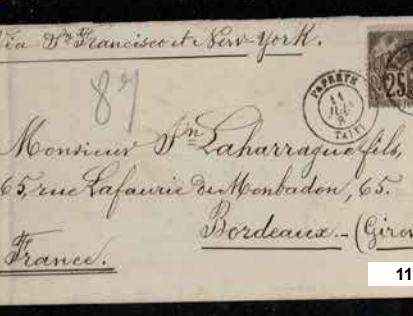 Via Sn. Francisco et New-York.
87
PAPEETE
11
TAITI
25
Monsieur Jn Laharrague fils,
65, rue Lafaurie de Monbadon, 65.
Bordeaux.- (Giron
France.
11